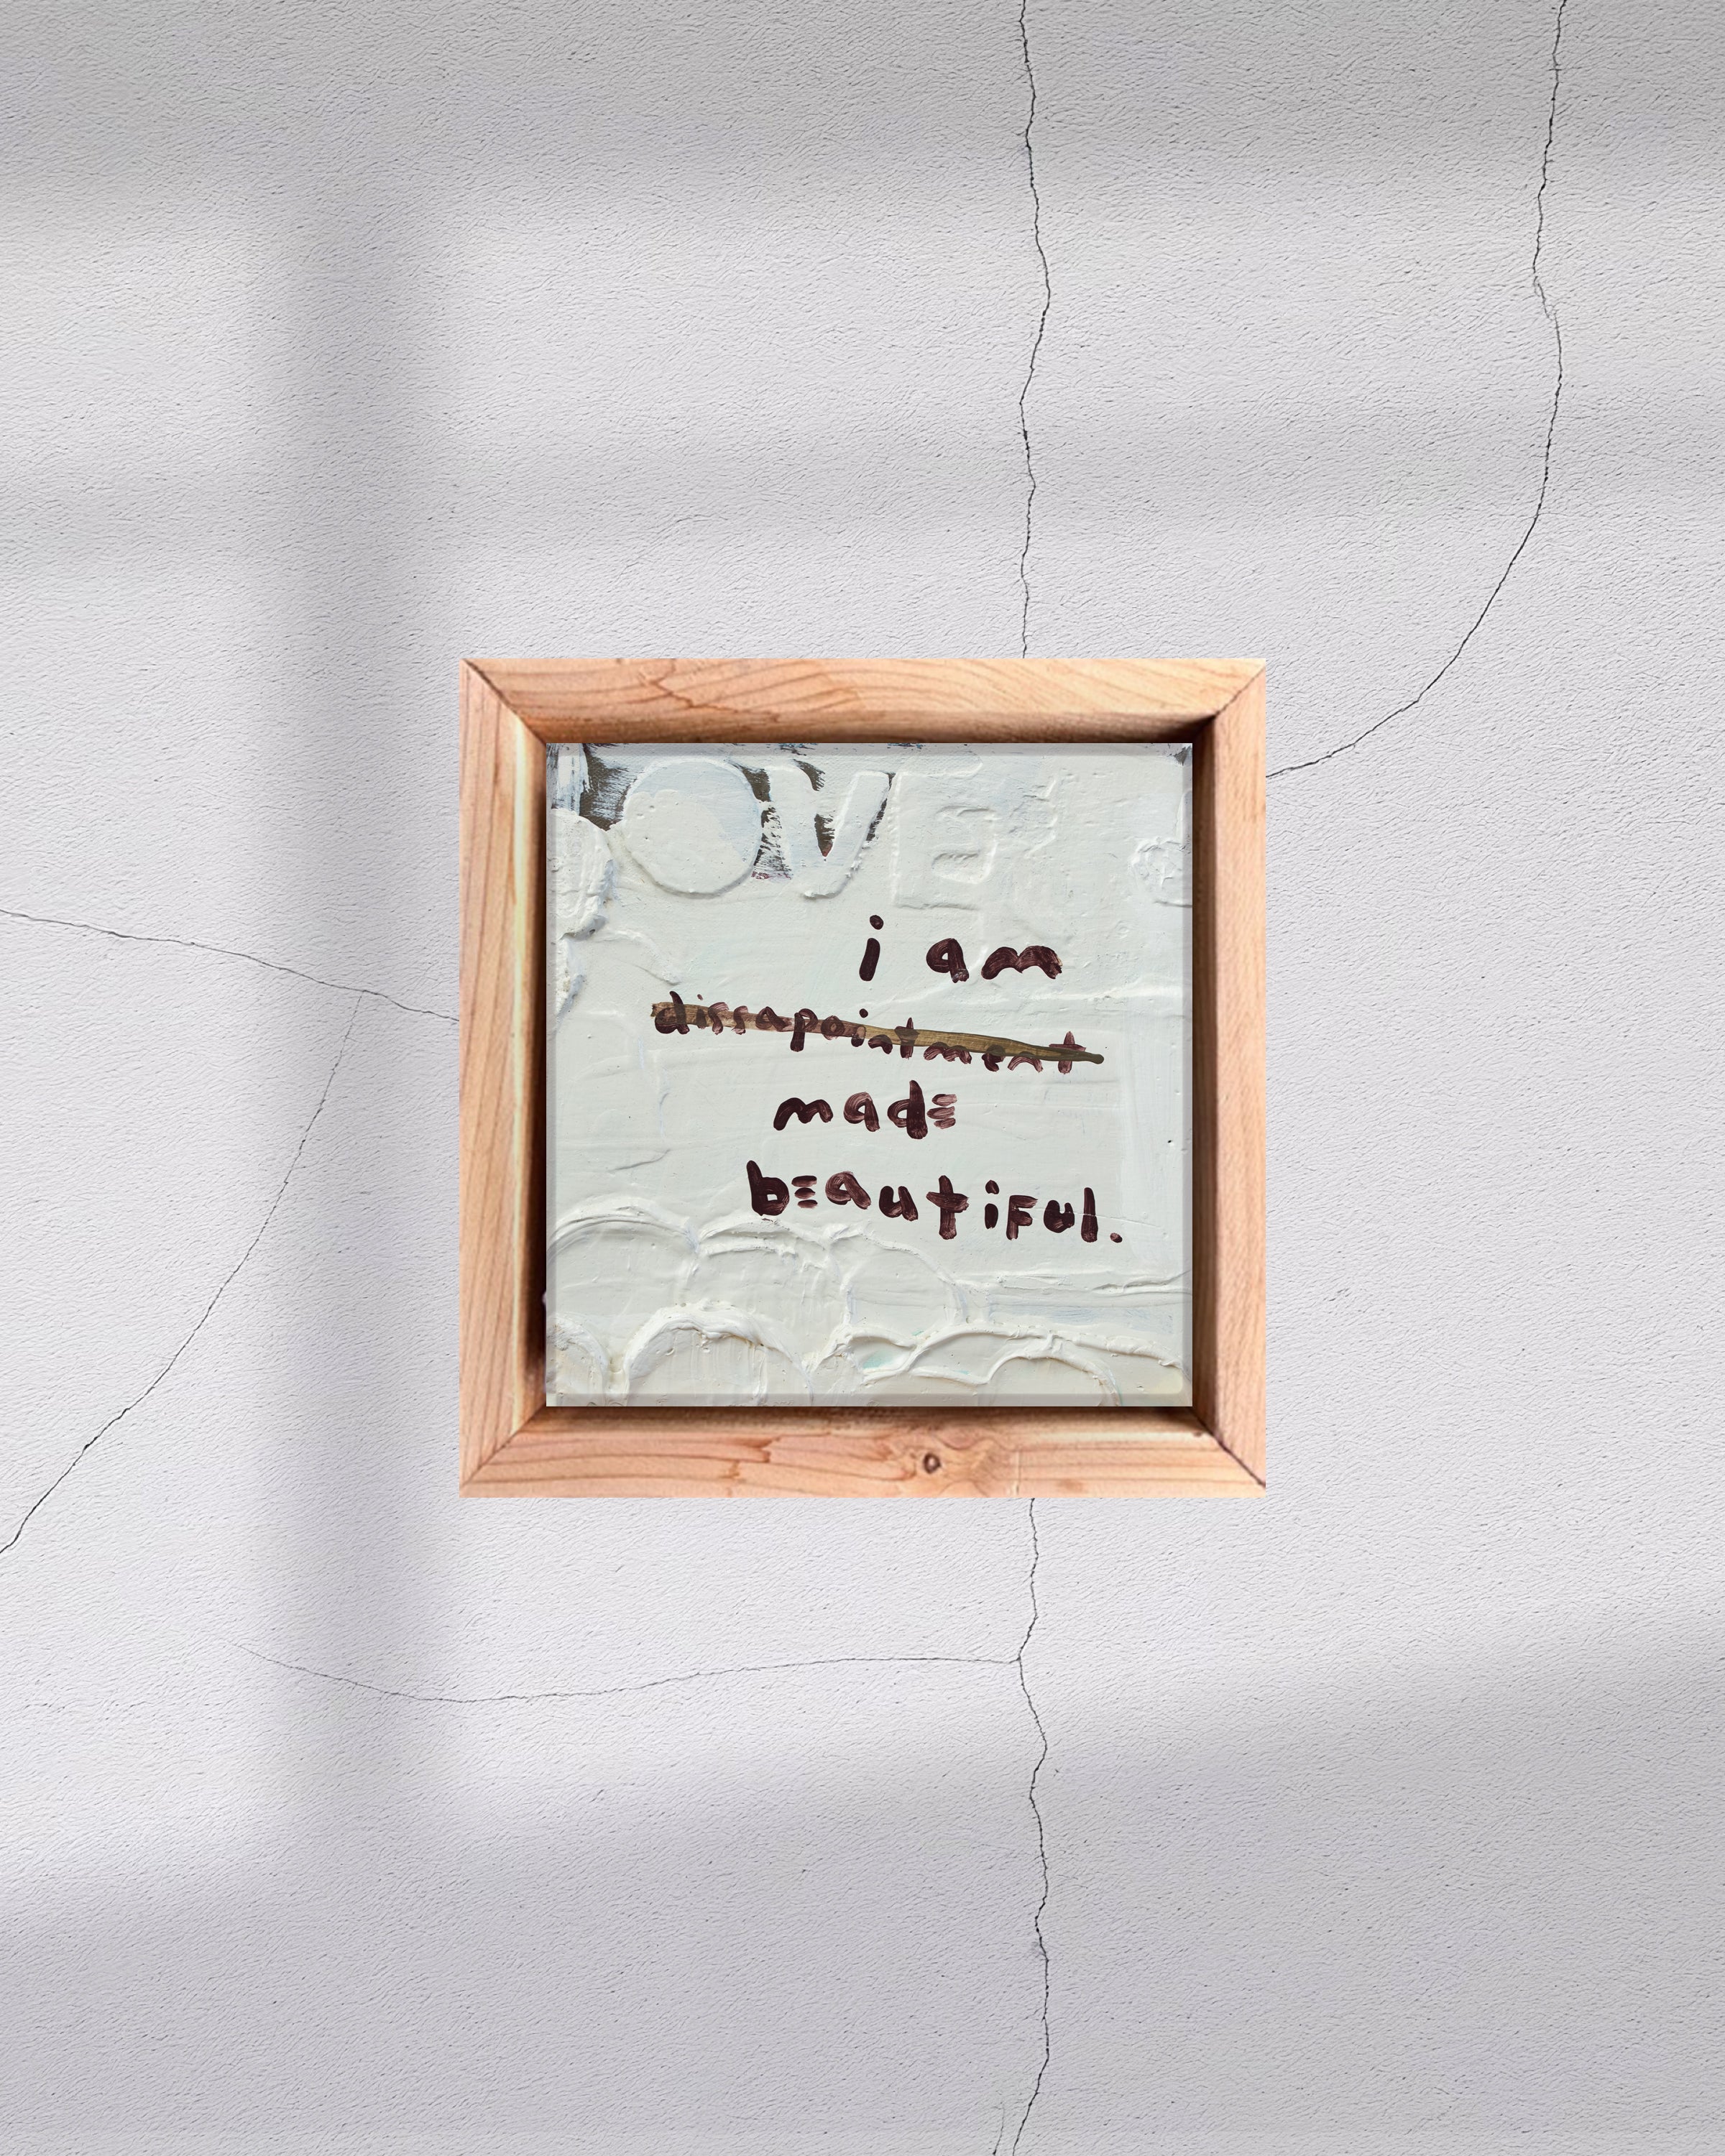 OVE
i am
dissapointment
made
beautiful.